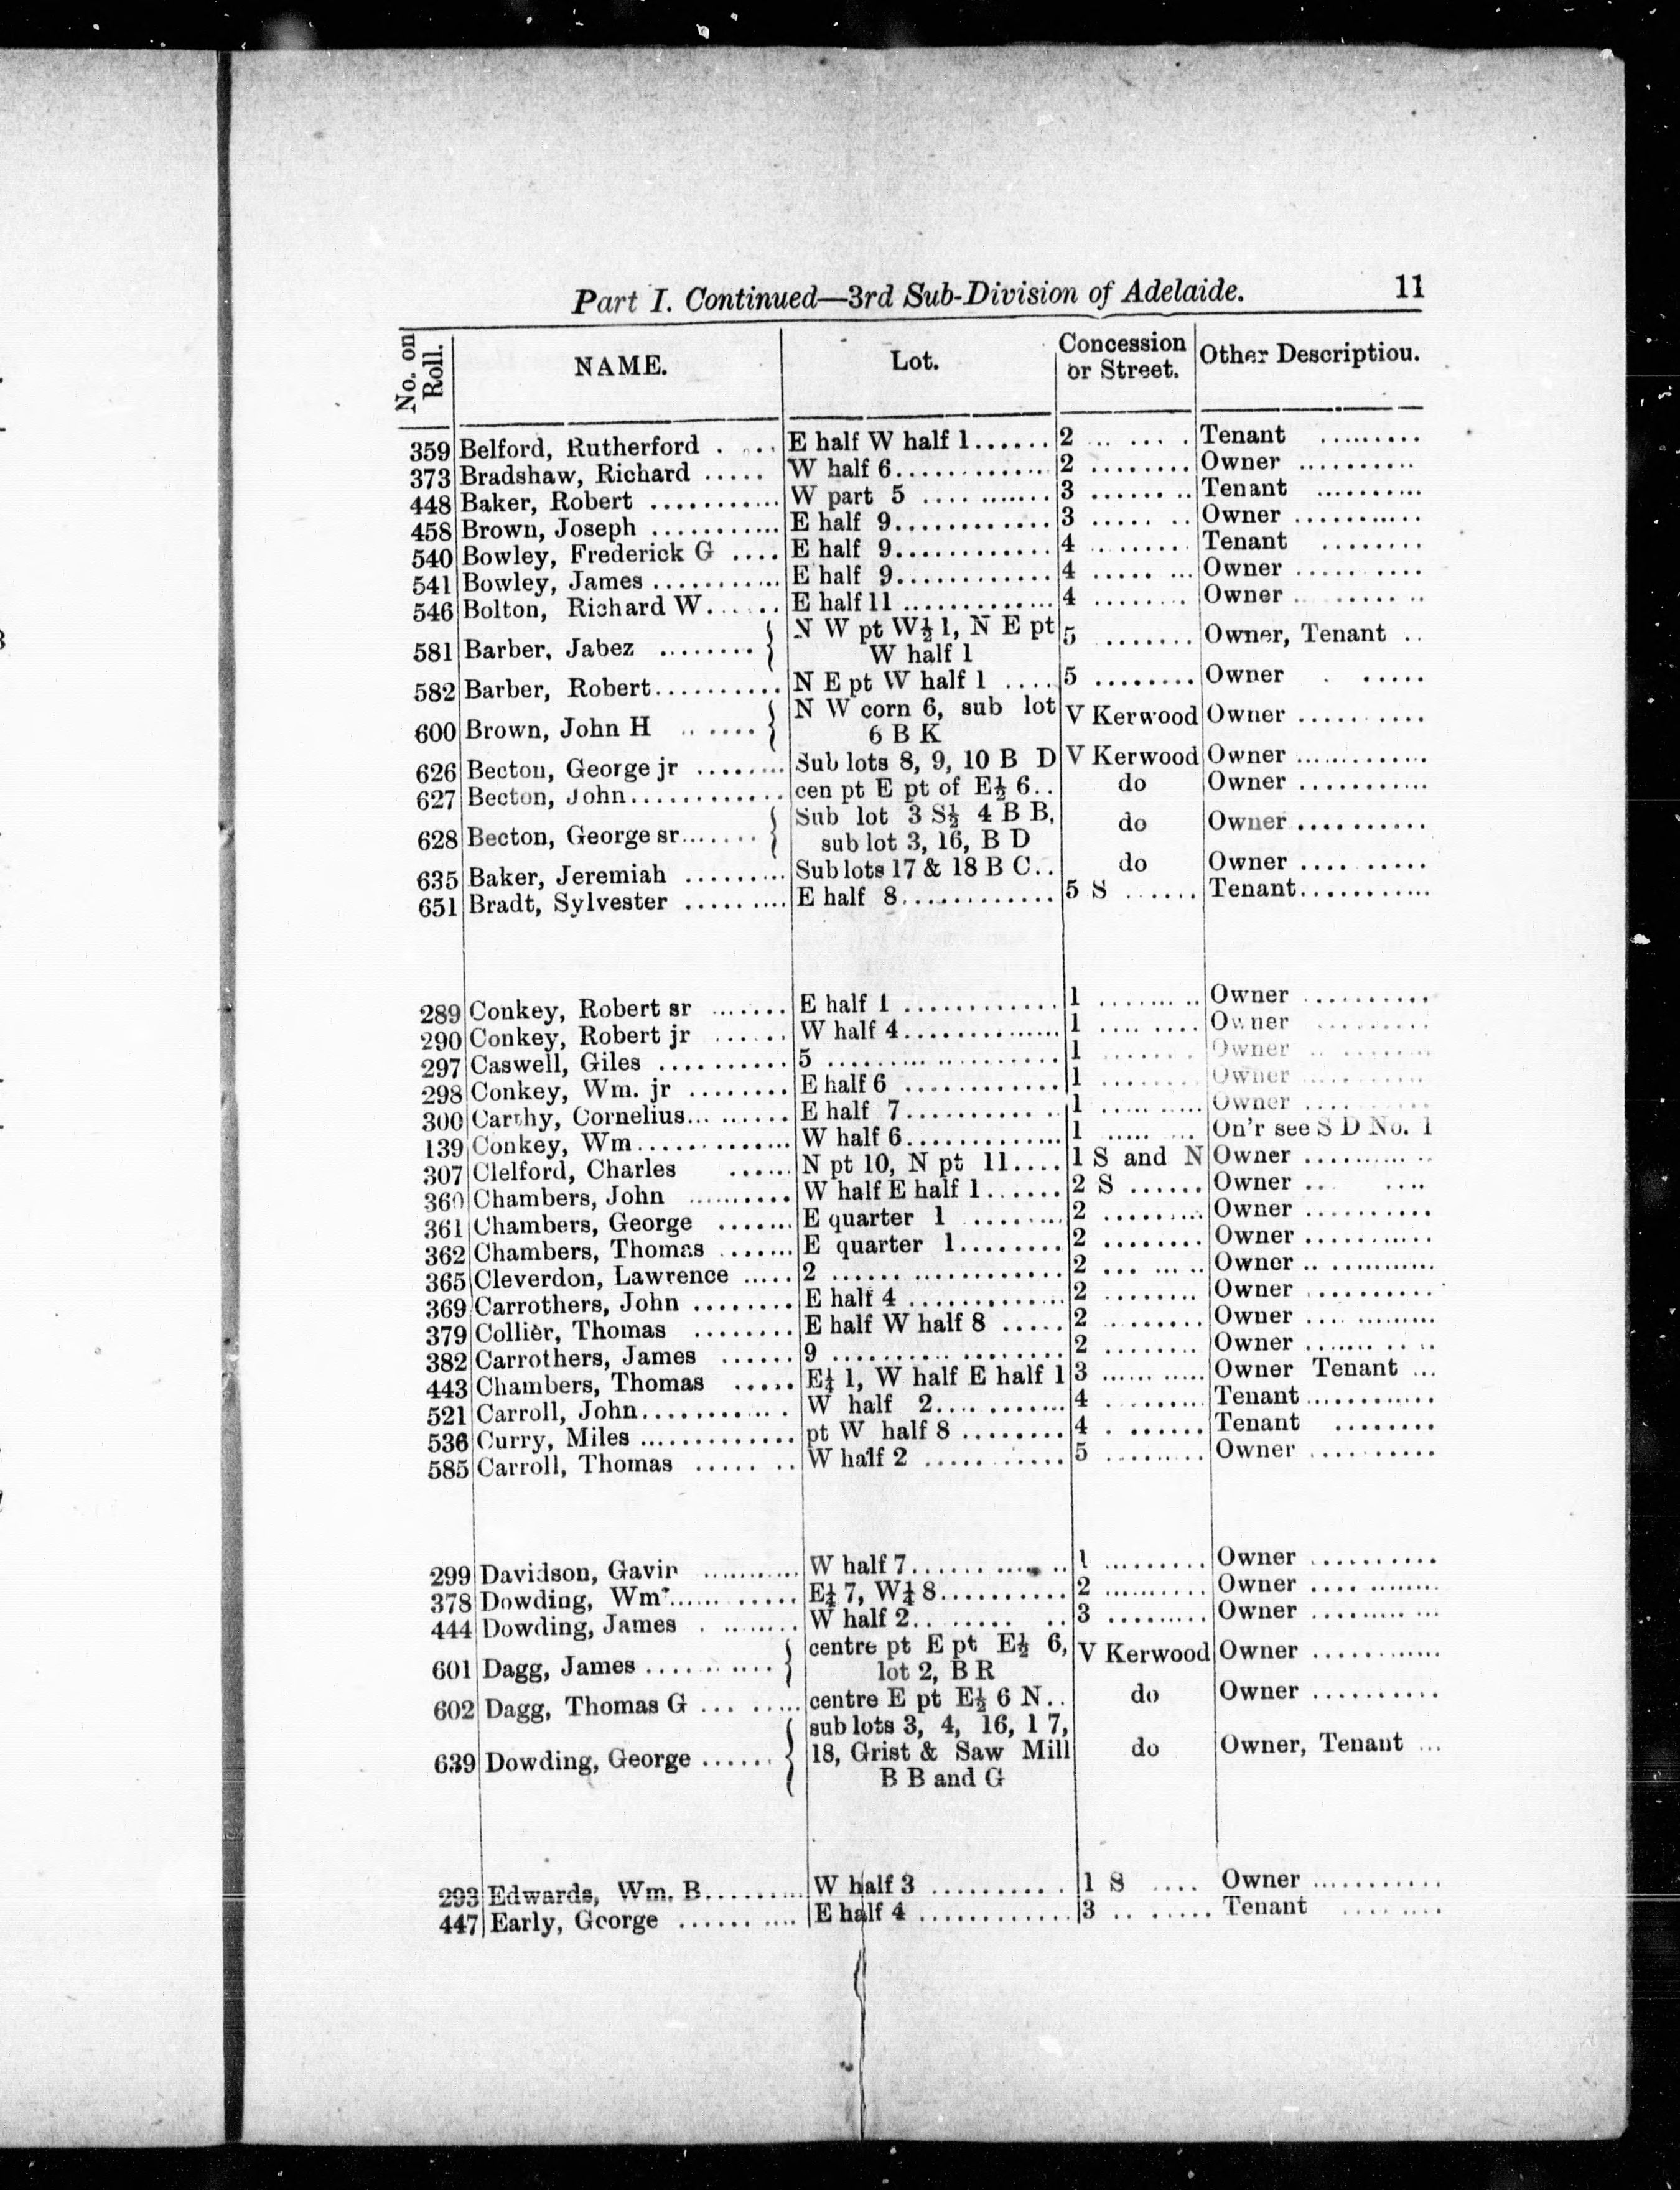 Part I. Continued—3rd Sub-Division of Adelaide. 11
No. on Roll. NAME. Lot. Concession or Street. Other Descriptiou.
359 Belford, Rutherford .... E half W half 1...... 2 ........ Tenant .........
373 Bradshaw, Richard ..... W half 6............. 2 ........ Owner ..........
448 Baker, Robert ........... W part 5 ........... 3 ......... Tenant ..........
458 Brown, Joseph ........... E half 9............ 3 ....... Owner ...........
540 Bowley, Frederick G .... E half 9............ 4 ........ Tenant ........
541 Bowley, James ........... E half 9............ 4 ........ Owner ..........
546 Bolton, Richard W...... E half 11 ............. 4 ........ Owner ..........
581 Barber, Jabez ........ { N W pt W½ 1, N E pt 5 ........ Owner, Tenant ..
W half 1
582 Barber, Robert.......... N E pt W half 1 .... 5 ........ Owner . .....
600 Brown, John H ...... { N W corn 6, sub lot V Kerwood Owner ..........
6 B K
626 Becton, George jr ......... Sub lots 8, 9, 10 B D V Kerwood Owner .............
627 Becton, John............ cen pt E pt of E½ 6.. do Owner ...........
628 Becton, George sr....... { Sub lot 3 S½ 4 B B, do Owner ..........
sub lot 3, 16, B D
635 Baker, Jeremiah ......... Sub lots 17 & 18 B C.. do Owner .........
651 Bradt, Sylvester ......... E half 8............ 5 S ...... Tenant...........
289 Conkey, Robert sr ....... E half 1 ............ 1 ......... Owner ..........
290 Conkey, Robert jr ...... W half 4.............. 1 ........ Owner .........
297 Caswell, Giles .......... 5 .................... 1 ....... Owner .........
298 Conkey, Wm. jr ........ E half 6 ............ 1 ........ Owner ..........
300 Carthy, Cornelius......... E half 7............ 1 .......... Owner ..........
139 Conkey, Wm............. W half 6............. 1 ........ On'r see S D No. 1
307 Clelford, Charles ...... N pt 10, N pt 11.... 1 S and N Owner ...........
360 Chambers, John .......... W half E half 1...... 2 S ...... Owner .......
361 Chambers, George ....... E quarter 1 ......... 2 ......... Owner ..........
362 Chambers, Thomas ....... E quarter 1........ 2 ........ Owner ...........
365 Cleverdon, Lawrence ..... 2 .................... 2 ........ Owner .............
369 Carrothers, John ........ E half 4 ............. 2 ........ Owner ..........
379 Collier, Thomas ........ E half W half 8 ..... 2 ........ Owner ............
382 Carrothers, James ...... 9 .................... 2 ........ Owner ...........
443 Chambers, Thomas ..... E¼ 1, W half E half 1 3 .......... Owner Tenant ...
521 Carroll, John............ W half 2........... 4 ......... Tenant............
536 Curry, Miles ............. pt W half 8 ........ 4 ....... Tenant ........
585 Carroll, Thomas ....... W half 2 .......... 5 ......... Owner ..........
299 Davidson, Gavin .......... W half 7............. 1 ......... Owner ..........
378 Dowding, Wm............. E¼ 7, W¼ 8.......... 2 .......... Owner ............
444 Dowding, James ......... W half 2.......... 3 ......... Owner ............
601 Dagg, James ........... { centre pt E pt E½ 6, V Kerwood Owner ............
lot 2, B R
602 Dagg, Thomas G ......... centre E pt E½ 6 N.. do Owner ..........
639 Dowding, George ...... { sub lots 3, 4, 16, 1 7,
18, Grist & Saw Mill do Owner, Tenant ...
B B and G
293 Edwards, Wm. B......... W half 3 .......... 1 S .... Owner ...........
447 Early, George .......... E half 4 ............ 3 ........ Tenant ........